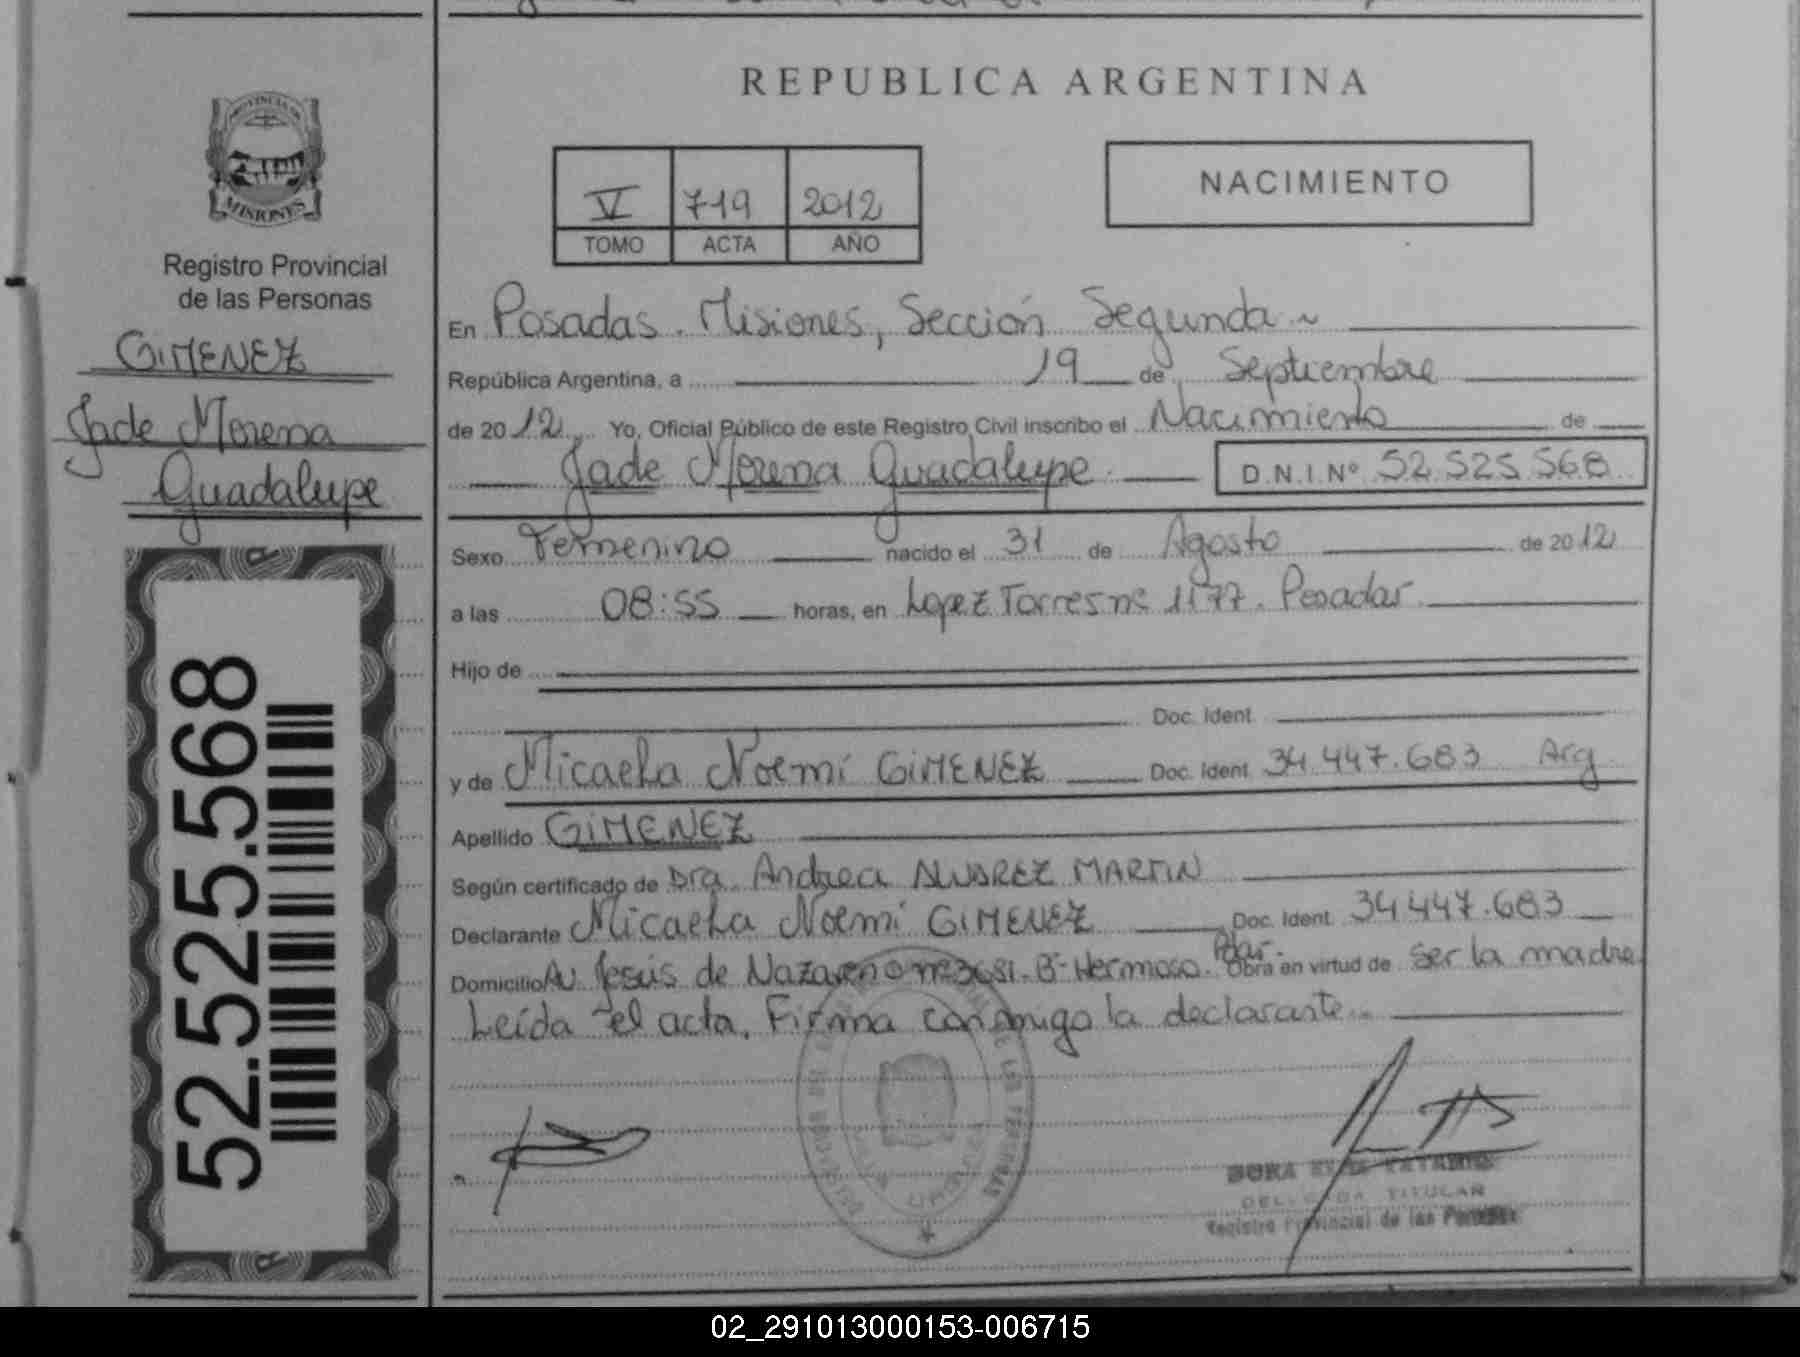 PROVINCIA DE
MISIONES
Registro Provincial
de las Personas
GIMENEZ
Jade Morena
Guadalupe
52.525.568
REPUBLICA ARGENTINA
V 719 2012
TOMO ACTA AÑO
NACIMIENTO
En Posadas. Misiones, Sección Segunda
República Argentina, a 19 de Septiembre
de 2012 Yo, Oficial Público de este Registro Civil inscribo el Nacimiento de
Jade Morena Guadalupe D.N.I.Nº 52.525.568
Sexo Femenino nacido el 31 de Agosto de 2012
a las 08:55 horas, en Lopez Torres nº 1177. Posadas
Hijo de
Doc. Ident.
y de Micaela Noemí GIMENEZ Doc. Ident. 34.447.683 Arg
Apellido GIMENEZ
Según certificado de Dra. Andrea ALVAREZ MARTIN
Declarante Micaela Noemí GIMENEZ Doc. Ident. 34.447.683
Domicilio Av. Jesús de Nazareno nº 3681. Bº Hermoso. Pdas. Obra en virtud de ser la madre
Leída el acta. Firma conmigo la declarante.
DORA
DELEGADA TITULAR
Registro Provincial de las Personas
02_291013000153-006715